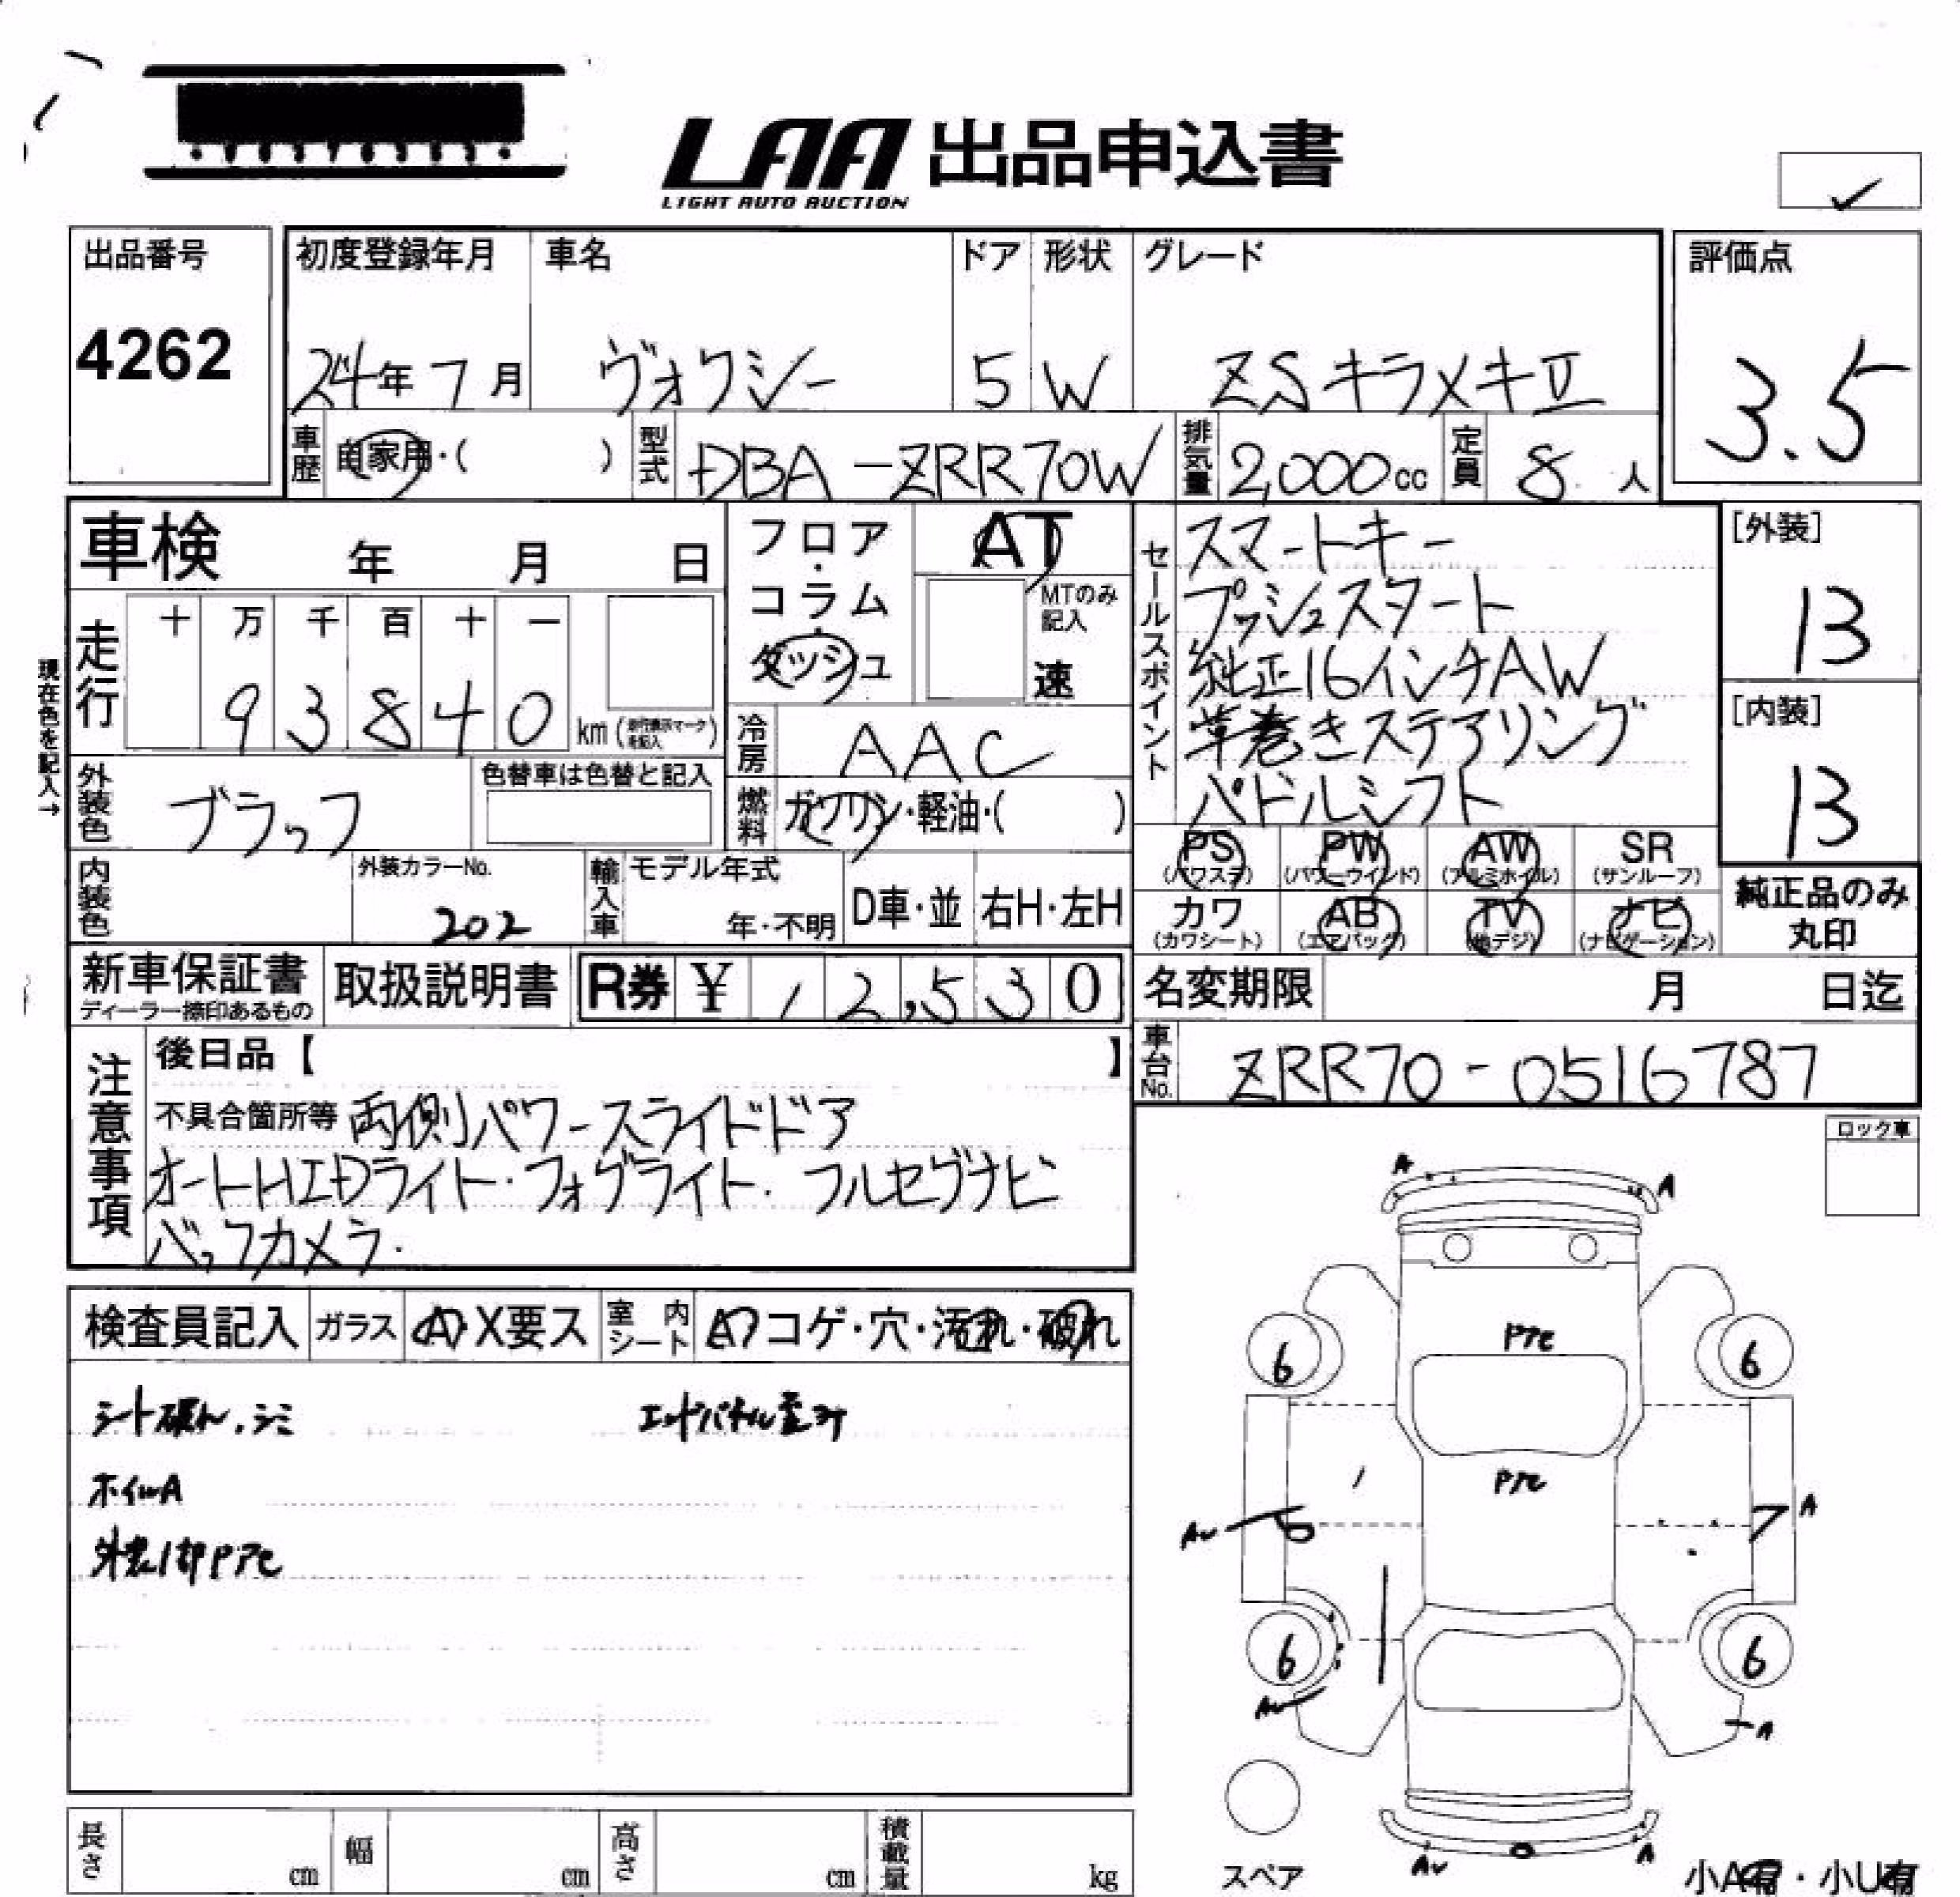 LAA 出品申込書
LIGHT AUTO AUCTION
出品番号
4262
初度登録年月
24年7月
車名
ヴォクシー
ドア
5
形状
W
グレード
ZSキラメキⅡ
評価点
3.5
車歴 自家用・( )
型式 DBA-ZRR70W
排気量 2,000cc
定員 8人
車検 年 月 日
フロア・コラム・ダッシュ
AT
MTのみ記入
速
セールスポイント
スマートキー
プッシュスタート
純正16インチAW
革巻きステアリング
パドルシフト
[外装]
13
[内装]
13
現在色を記入→
走行
十 万 千 百 十 一
9 3 8 4 0 km
冷房 AAC
外装色 ブラック
色替車は色替と記入
燃料 ガソリン・軽油・( )
PS (パワステ)
PW (パワーウインド)
AW (アルミホイル)
SR (サンルーフ)
カワ (カワシート)
AB (エアバッグ)
TV (地デジ)
ナビ (ナビゲーション)
純正品のみ
丸印
内装色
外装カラーNo.
202
輸入車
モデル年式
年・不明
D車・並
右H・左H
新車保証書
ディーラー捺印あるもの
取扱説明書
R券 ¥ 12,530
名変期限 月 日迄
車台No. ZRR70-0516787
注意事項
後日品【 】
不具合箇所等 両側パワースライドドア
オートHIDライト・フォグライト.フルセグナビ
バックカメラ.
ロック車
検査員記入
ガラス A・X要ス
室内シート
コゲ・穴・汚れ・破れ
シート破れ.シミ
エンドパネル歪み
ホイルA
外装1部Pアセ
A
A
Pアセ
6
6
Pアセ
AU
A
6
6
AU
A
AU
A
スペア
小A有・小U有
長さ cm
幅 cm
高さ cm
積載量 kg